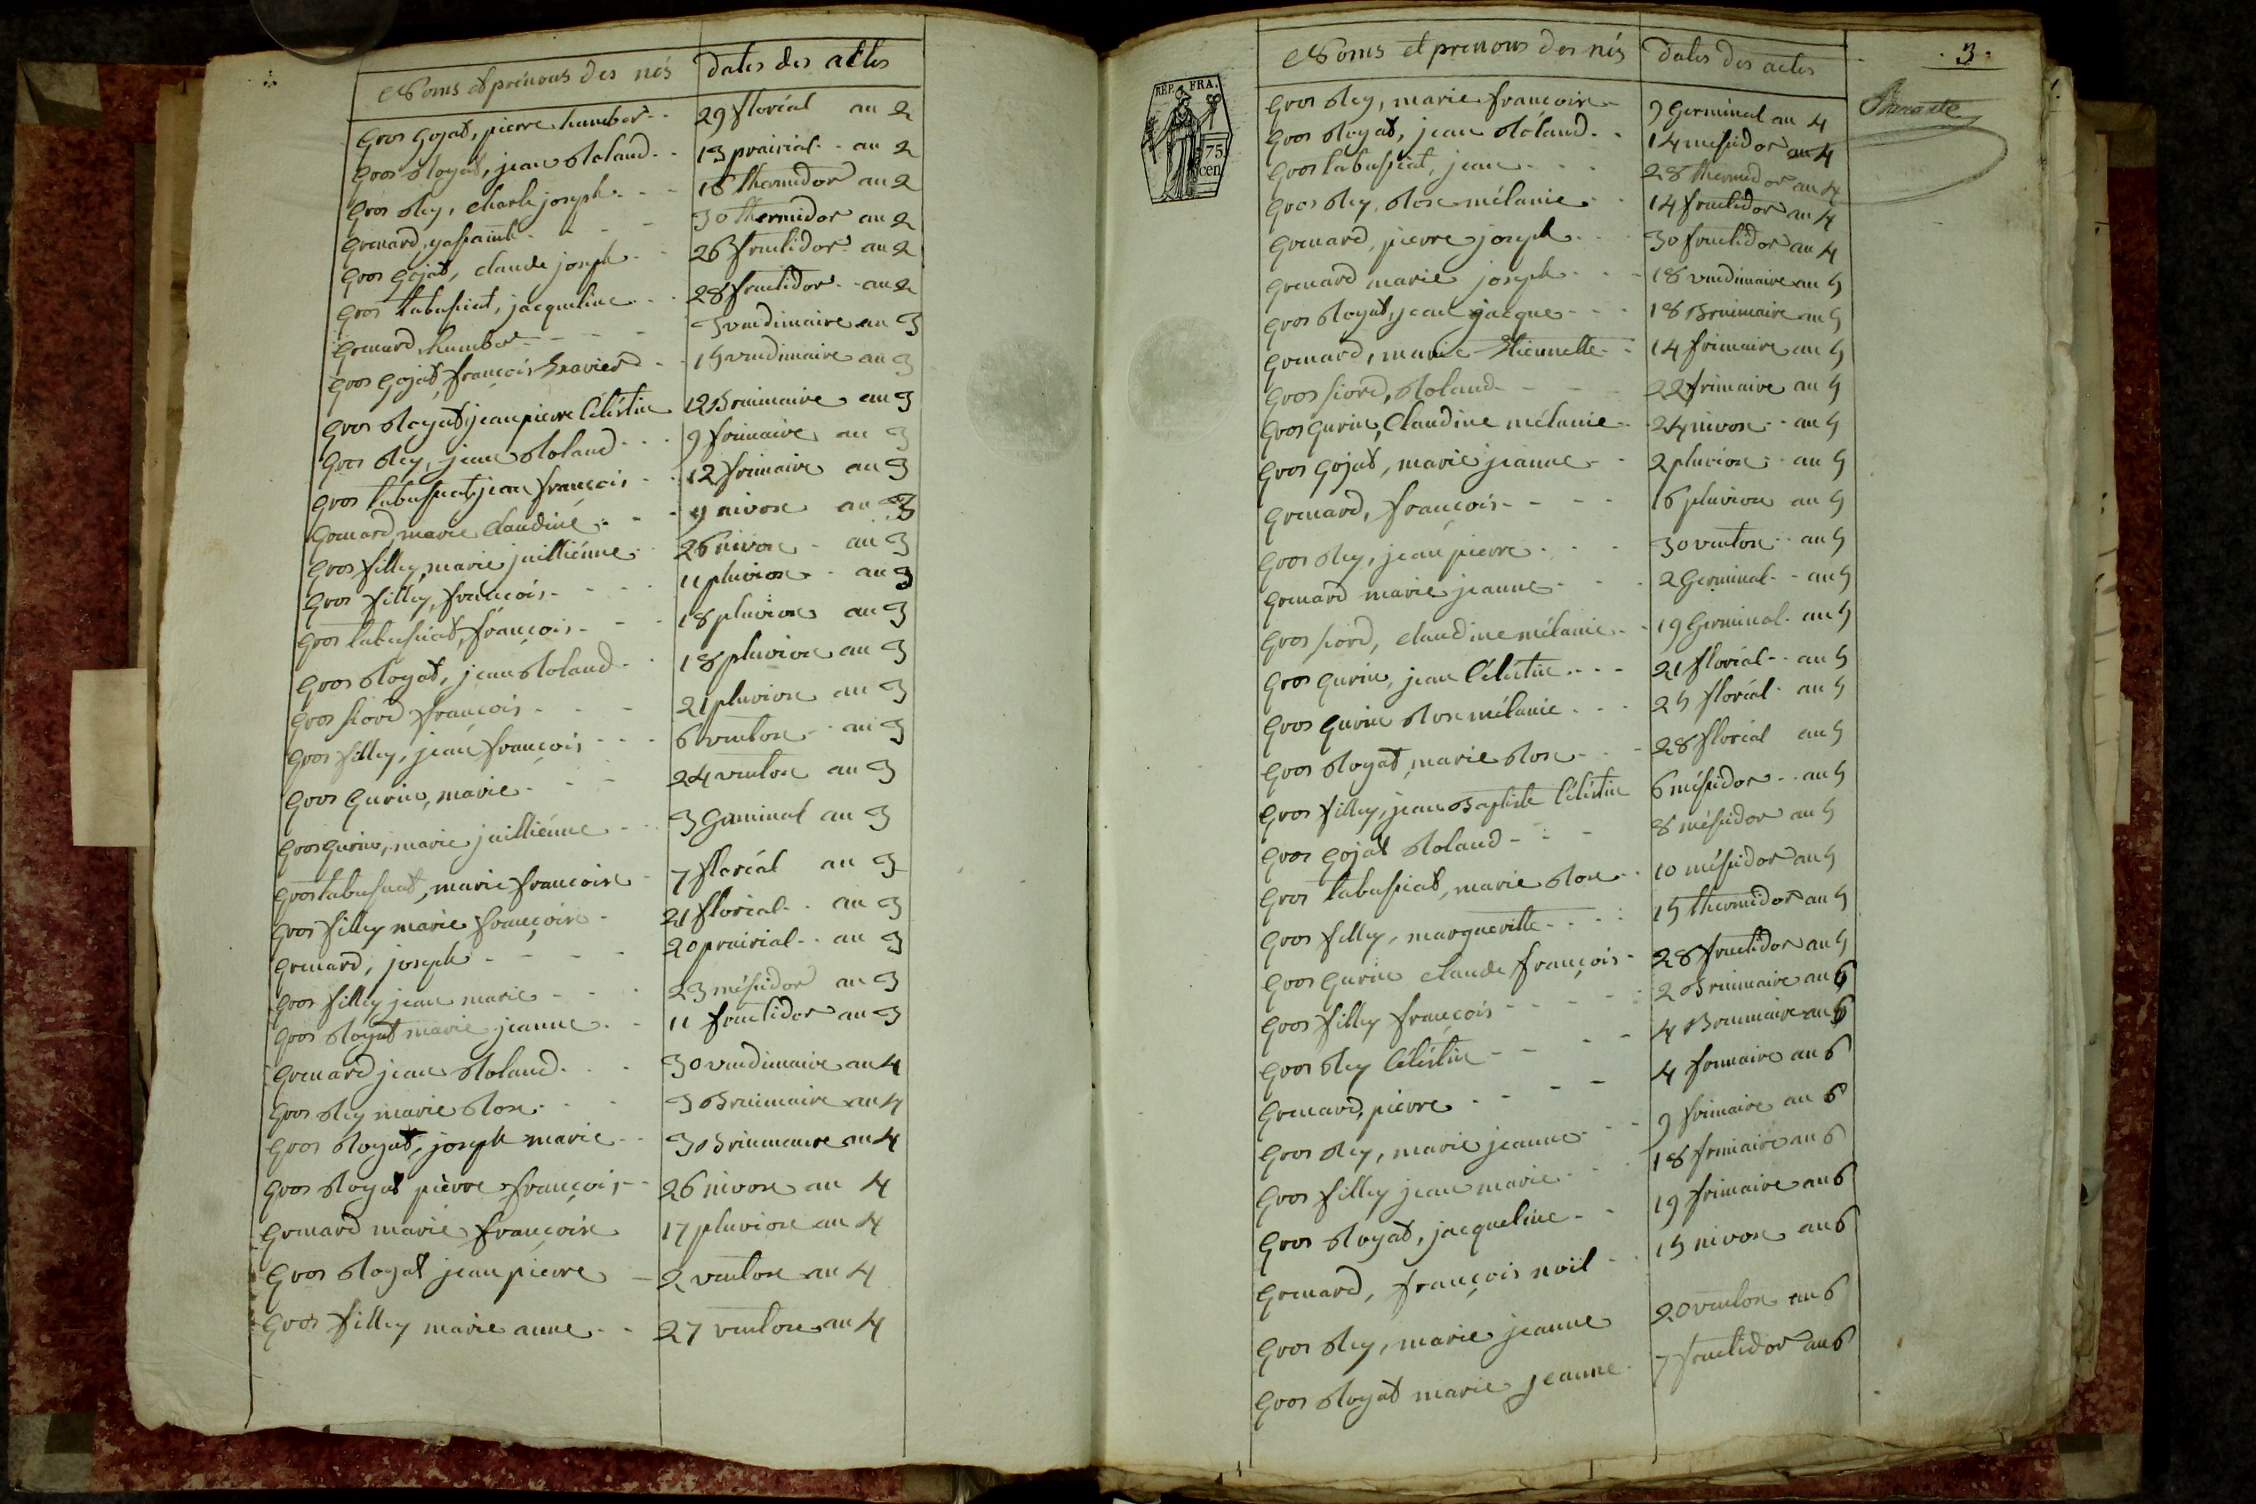 Noms et prénoms des nés | dates des actes
Gros Gojat, pierre humbert | 29 floréal an 2
Gros Royat, jean Roland | 13 prairial an 2
Gros Rey, charle joseph | 18 thermidor an 2
Grenard, | 30 thermidor an 2
Gros Gojat, claude joseph | 26 fructidor an 2
Gros labussiat, jacqueline | 28 fructidor an 2
Grenard, humbert | 3 vendimaire an 3
Gros Gojat, françois Xavier | 15 vendimaire an 3
Gros Royat, jean pierre Céléstin | 12 Brumaire an 3
Gros Rey, jean Roland | 9 frimaire an 3
Gros labussiat, jean françois | 12 frimaire an 3
Grenard, marie claudine | nivose an 3
Gros filley, marie juilliénne | 26 nivose an 3
Gros filley, françois | 11 pluviose an 3
Gros labussiat, françois | 18 pluviose an 3
Gros Royat, jean Roland | 18 pluviose an 3
Gros fiord françois | 21 pluviose an 3
Gros filley, jean françois | 6 ventose an 3
Gros Gurin, marie | 24 ventose an 3
Gros Gurin, marie juilliénne | 3 Germinal an 3
Gros labussiat, marie françoise | 7 floréal an 3
Gros filley marie françoise | 21 floréal an 3
Grenard, joseph | 20 prairial an 3
Gros filley jean marie | 23 méssidor an 3
Gros Royat marie jeanne | 11 fructidor an 3
Grenard jean Roland | 30 vendimaire an 4
Gros Rey marie Rose | 3 Brumaire an 4
Gros Royat, joseph marie | 30 Brumaire an 4
Gros Royat pierre françois | 26 nivose an 4
Grenard marie françoise | 17 pluviose an 4
Gros Royat jean pierre | 2 ventose an 4
Gros filley marie anne | 27 ventose an 4
3
REP. FRA.
75
cen
Noms et prenoms des nés | dates des actes
Gros Rey, marie françoise | 9 Germinal an 4
Gros Royat, jean Roland | 14 messidor an 4
Gros labussiat, jean | 28 thermidor an 4
Gros Rey, Rose mélanie | 14 fructidor an 4
Grenard, pierre joseph | 30 fructidor an 4
Grenard marie joseph | 18 vendimaire an 5
Gros Royat, jean jacque | 18 Brumaire an 5
Grenard, marie Etiennette | 14 frimaire an 5
Gros fiord, Roland | 22 frimaire an 5
Gros Gurin, Claudine mélanie | 24 nivose an 5
Gros Gojat, marie jeanne | 2 pluviose an 5
Grenard, françois | 16 pluviose an 5
Gros Rey, jean pierre | 30 ventose an 5
Grenard marie jeanne | 2 Germinal an 5
Gros fiord, claudine mélanie | 19 Germinal an 5
Gros Gurin, jean Céléstin | 21 floréal an 5
Gros Gurin Rose mélanie | 25 floréal an 5
Gros Royat, marie Rose | 28 floréal an 5
Gros filley, jean Baptiste Céléstin | 6 méssidor an 5
Gros Gojat Roland | 8 méssidor an 5
Gros labussiat, marie Rose | 10 méssidor an 5
Gros filley, margueritte | 15 thermidor an 5
Gros Gurin claude françois | 28 fructidor an 5
Gros filley françois | 2 Brumaire an 6
Gros Rey Céléstin | 4 Brumaire an 6
Grenard, pierre | 4 frimaire an 6
Gros Rey, marie jeanne | 9 frimaire an 6
Gros filley jean marie | 18 frimaire an 6
Gros Royat, jacqueline | 19 frimaire an 6
Grenard, françois noil | 15 nivose an 6
Gros Rey, marie jeanne | 20 ventose an 6
Gros Royat marie jeanne | 7 fructidor an 6